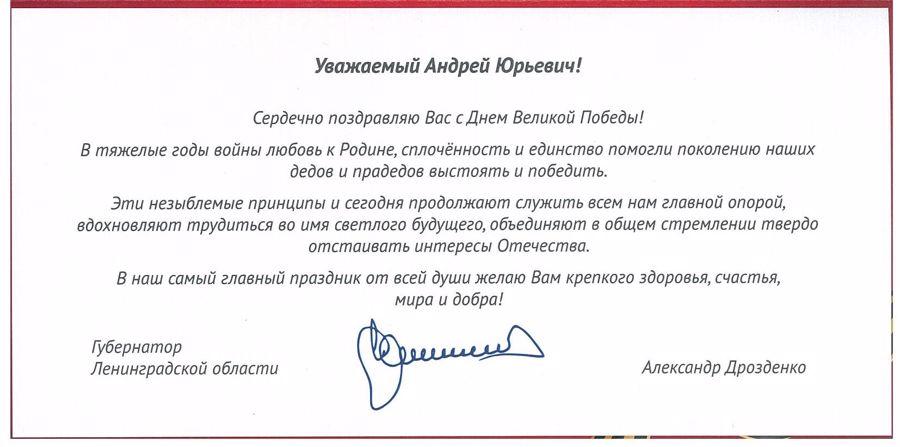 Уважаемый Андрей Юрьевич!
Сердечно поздравляю Вас с Днем Великой Победы!
В тяжелые годы войны любовь к Родине, сплочённость и единство помогли поколению наших
дедов и прадедов выстоять и победить.
Эти незыблемые принципы и сегодня продолжают служить всем нам главной опорой,
вдохновляют трудиться во имя светлого будущего, объединяют в общем стремлении твердо
отстаивать интересы Отечества.
В наш самый главный праздник от всей души желаю Вам крепкого здоровья, счастья,
мира и добра!
Губернатор
Ленинградской области
Александр Дрозденко